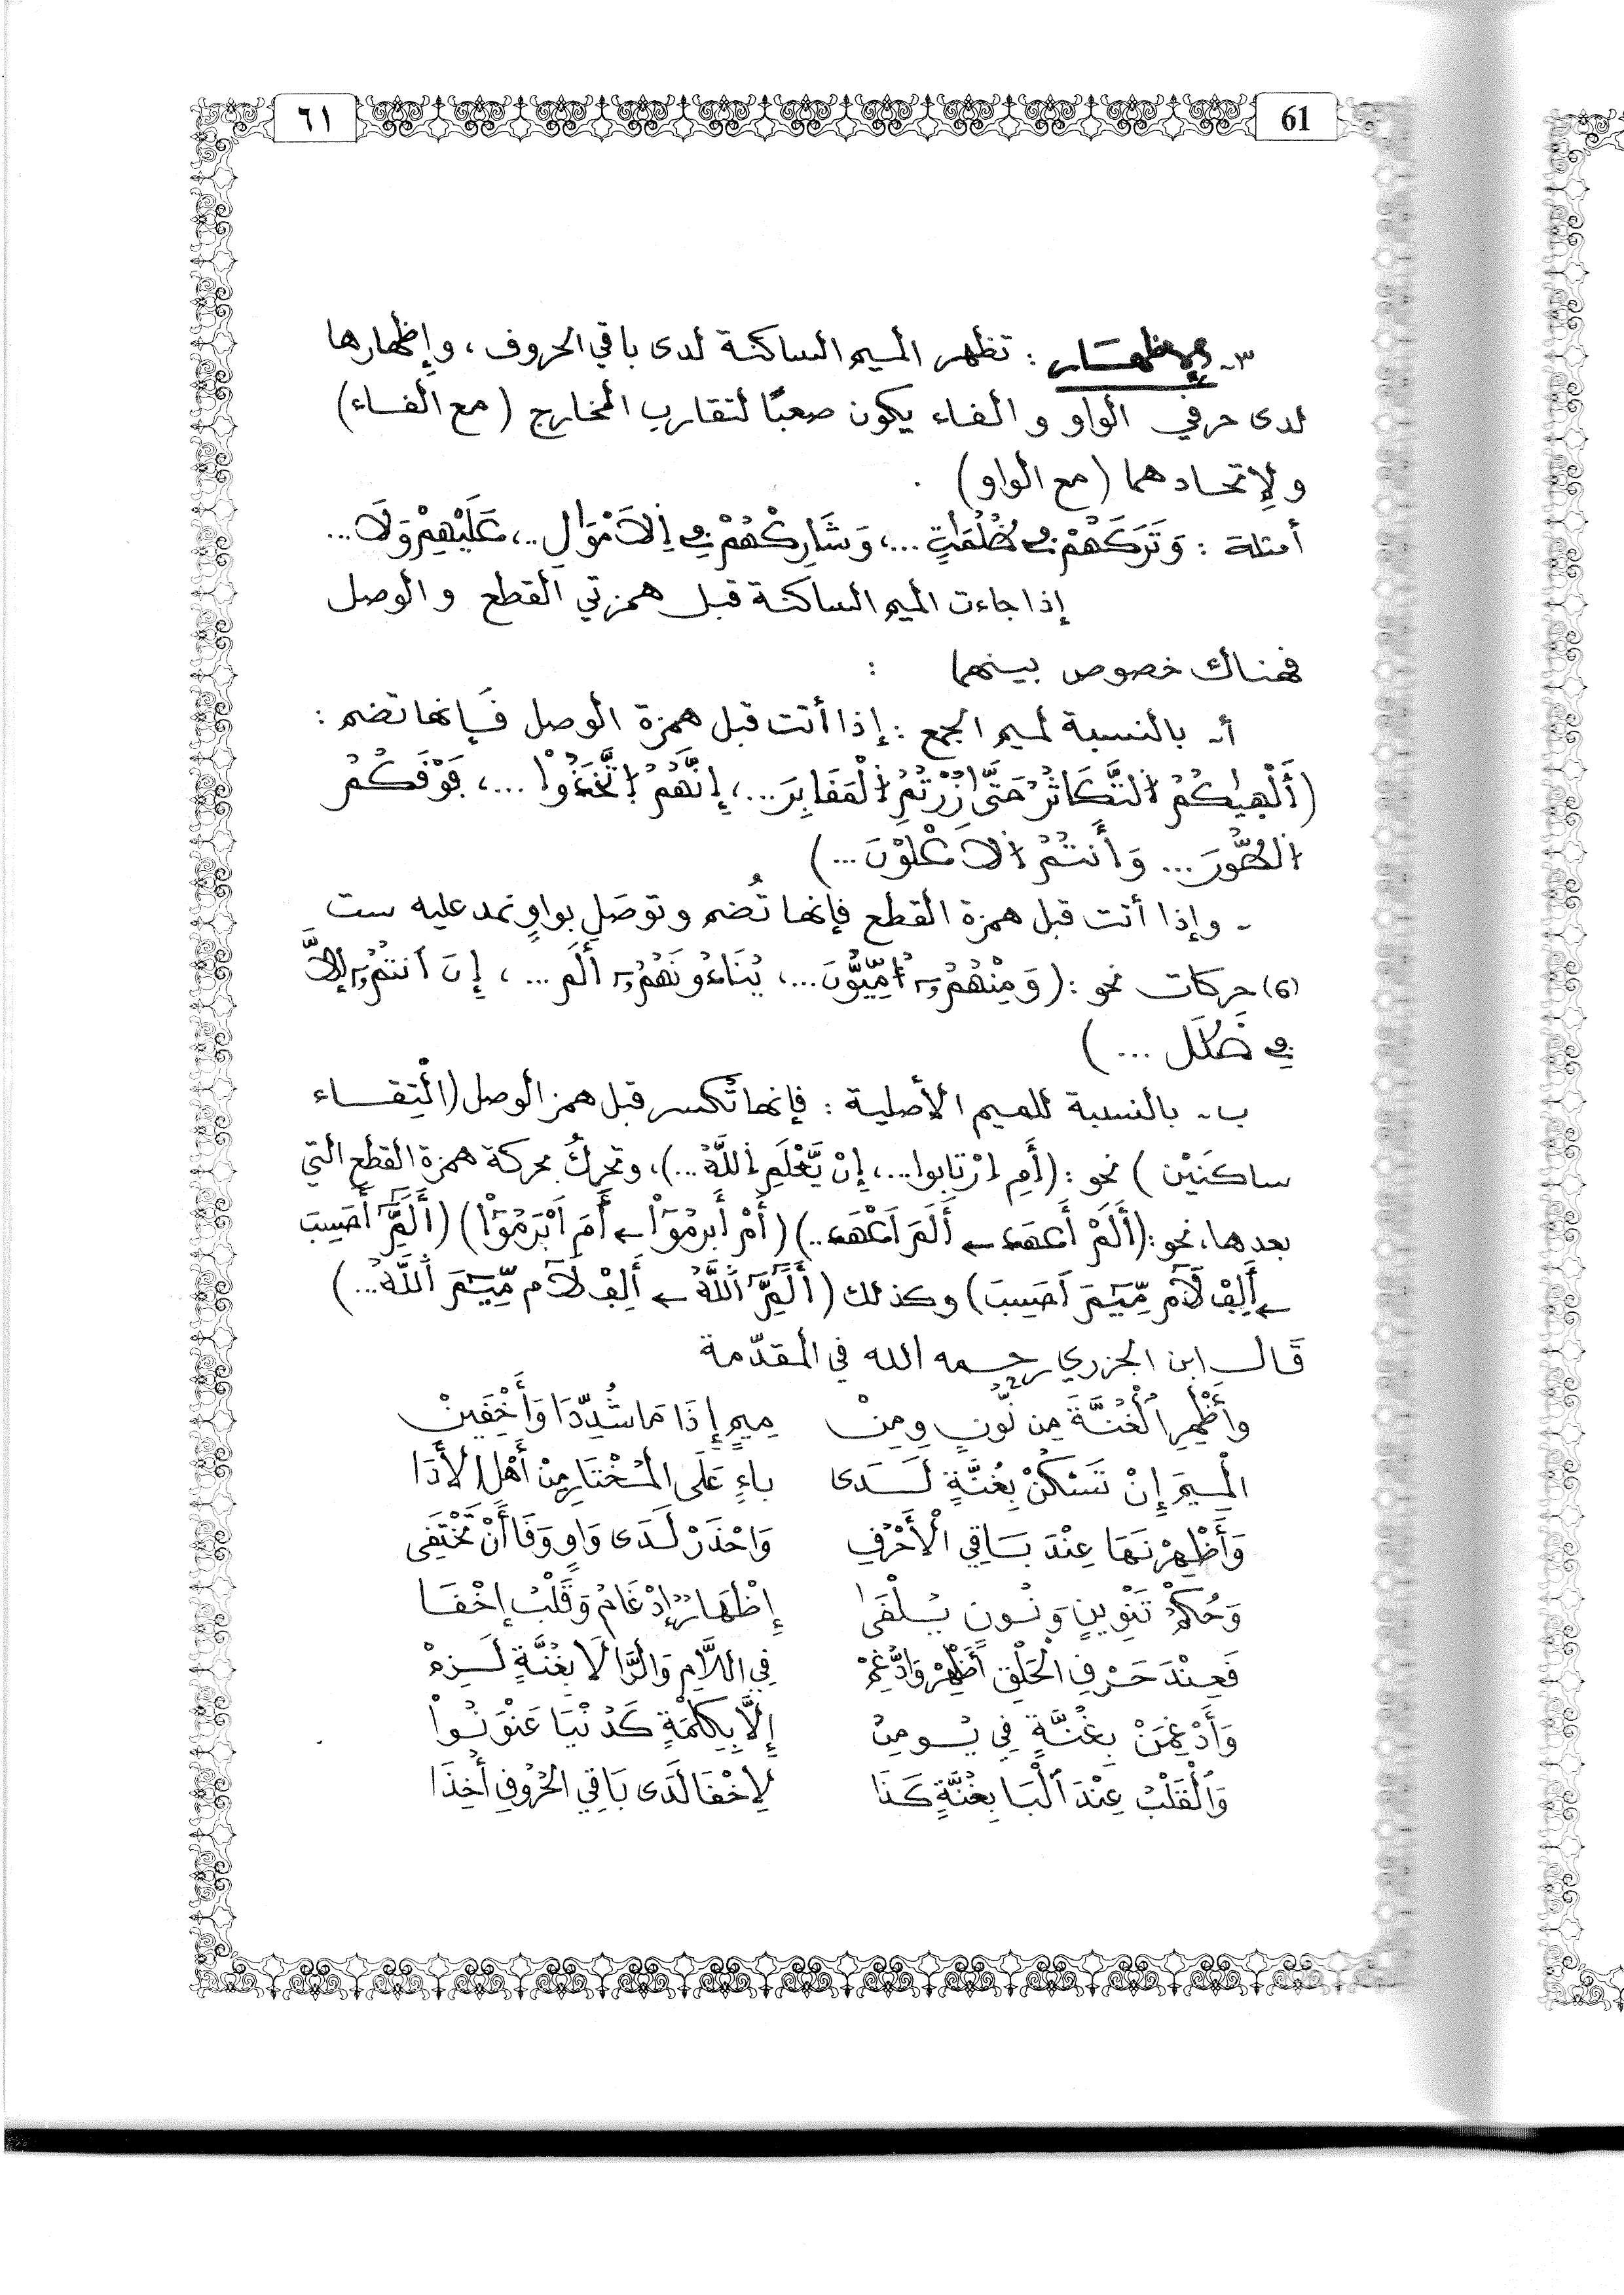 ٦١
61
٣- الإظهار : تظهر الميم الساكنة لدى باقي الحروف، وإظهارها
لدى حرفي الواو والفاء يكون صعبًا لتقارب المخارج (مع الفاء)
ولإتحادهما (مع الواو) .
أمثلة : وَتَرَكَهُمْ فِي ظُلُمَٰتٍ ...، وَشَارِكْهُمْ فِي اِلَامْوَالِ ..، عَلَيْهِمْ وَلَا ...
إذا جاءت الميم الساكنة قبل همزتي القطع والوصل
فهناك خصوص بينهما :
أ- بالنسبة لميم الجمع : إذا أتت قبل همزة الوصل فإنها تضم :
(أَلْهَيٰكُمُ اُلتَّكَاثُرُ حَتَّىٰ زُرْتُمُ اُلْمَقَابِرَ ...، إِنَّهُمُ اُتَّخَذُواْ ...، فَوْقَكُمُ
اُلطُّورَ ... وَأَنتُمُ اُلَاعْلَوْنَ ...)
- وإذا أتت قبل همزة القطع فإنها تُضم وتوصَل بواوٍ نمد عليه ست
(6) حركات نحو : (وَمِنْهُمُۥٓ أُمِّيُّونَ ...، يُنَادُونَهُمُۥٓ أَلَم ...، إِنَ اَنتُمُۥٓ إِلَّا
فِي ضَلَٰل ...)
ب- بالنسبة للميم الأصلية : فإنها تُكسر قبل همز الوصل (اِلْتِقاء
ساكنَيْن) نحو : (أَمِ اِرْتَابوا ...، إِنْ يَّعْلَمِ اِللَّهُ ...)، وتحركُ بحركة همزة القطع التي
بعدها، نحو : (أَلَمْ أَعْهَد ← أَلَمَ اَعْهَد ..) (أَمْ أَبْرَمُوٓاْ ← أَمَ اَبْرَمُوٓاْ) (أَلَٓمِّٓ أَحَسِبَ
← أَلِفْ لَآم مِّيٓمَ اَحَسِبَ) وكذلك (أَلَٓمِّٓ اَللَّهُ ← أَلِفْ لَآم مِّيٓمَ اَللَّهُ ...)
قَال ابن الجزري رحمه الله في المقدّمة
وأَظْهِرِ اَلْغُنَّةَ مِن نُّونٍ وَمِنْ    مِيمٍ إِذَا مَا شُدِّدَا وَأَخْفِيَنْ
الْمِيمَ إِنْ تَسْكُنْ بِغُنَّةٍ لَدَى    باءٍ عَلَى المُخْتَارِ مِنْ أَهْلِ الأَدَا
وَأَظْهِرَنْهَا عِنْدَ بَاقِي الْأَحْرُفِ    وَاحْذَرْ لَدَى وَاوٍ وَفَا أَنْ تَخْتَفِي
وَحُكْمُ تَنْوِينٍ وَنُونٍ يُلْفَىٰ    إِظْهَارٌ إِدْغَامٌ وَقَلْبٌ إِخْفَا
فَعِنْدَ حَرْفِ الْحَلْقِ أَظْهِرْ وَادَّغِمْ    فِي اللَّامِ وَالرَّا لَا بِغُنَّةٍ لَزِمْ
وَأَدْغِمَنْ بِغُنَّةٍ فِي يُومِنُ    إِلَّا بِكِلْمَةٍ كَدُنْيَا عَنْوَنُواْ
وَالْقَلْبُ عِنْدَ الْبَا بِغُنَّةٍ كَذَا    لِاخْفَا لَدَى بَاقِي الحُرُوفِ أُخِذَا